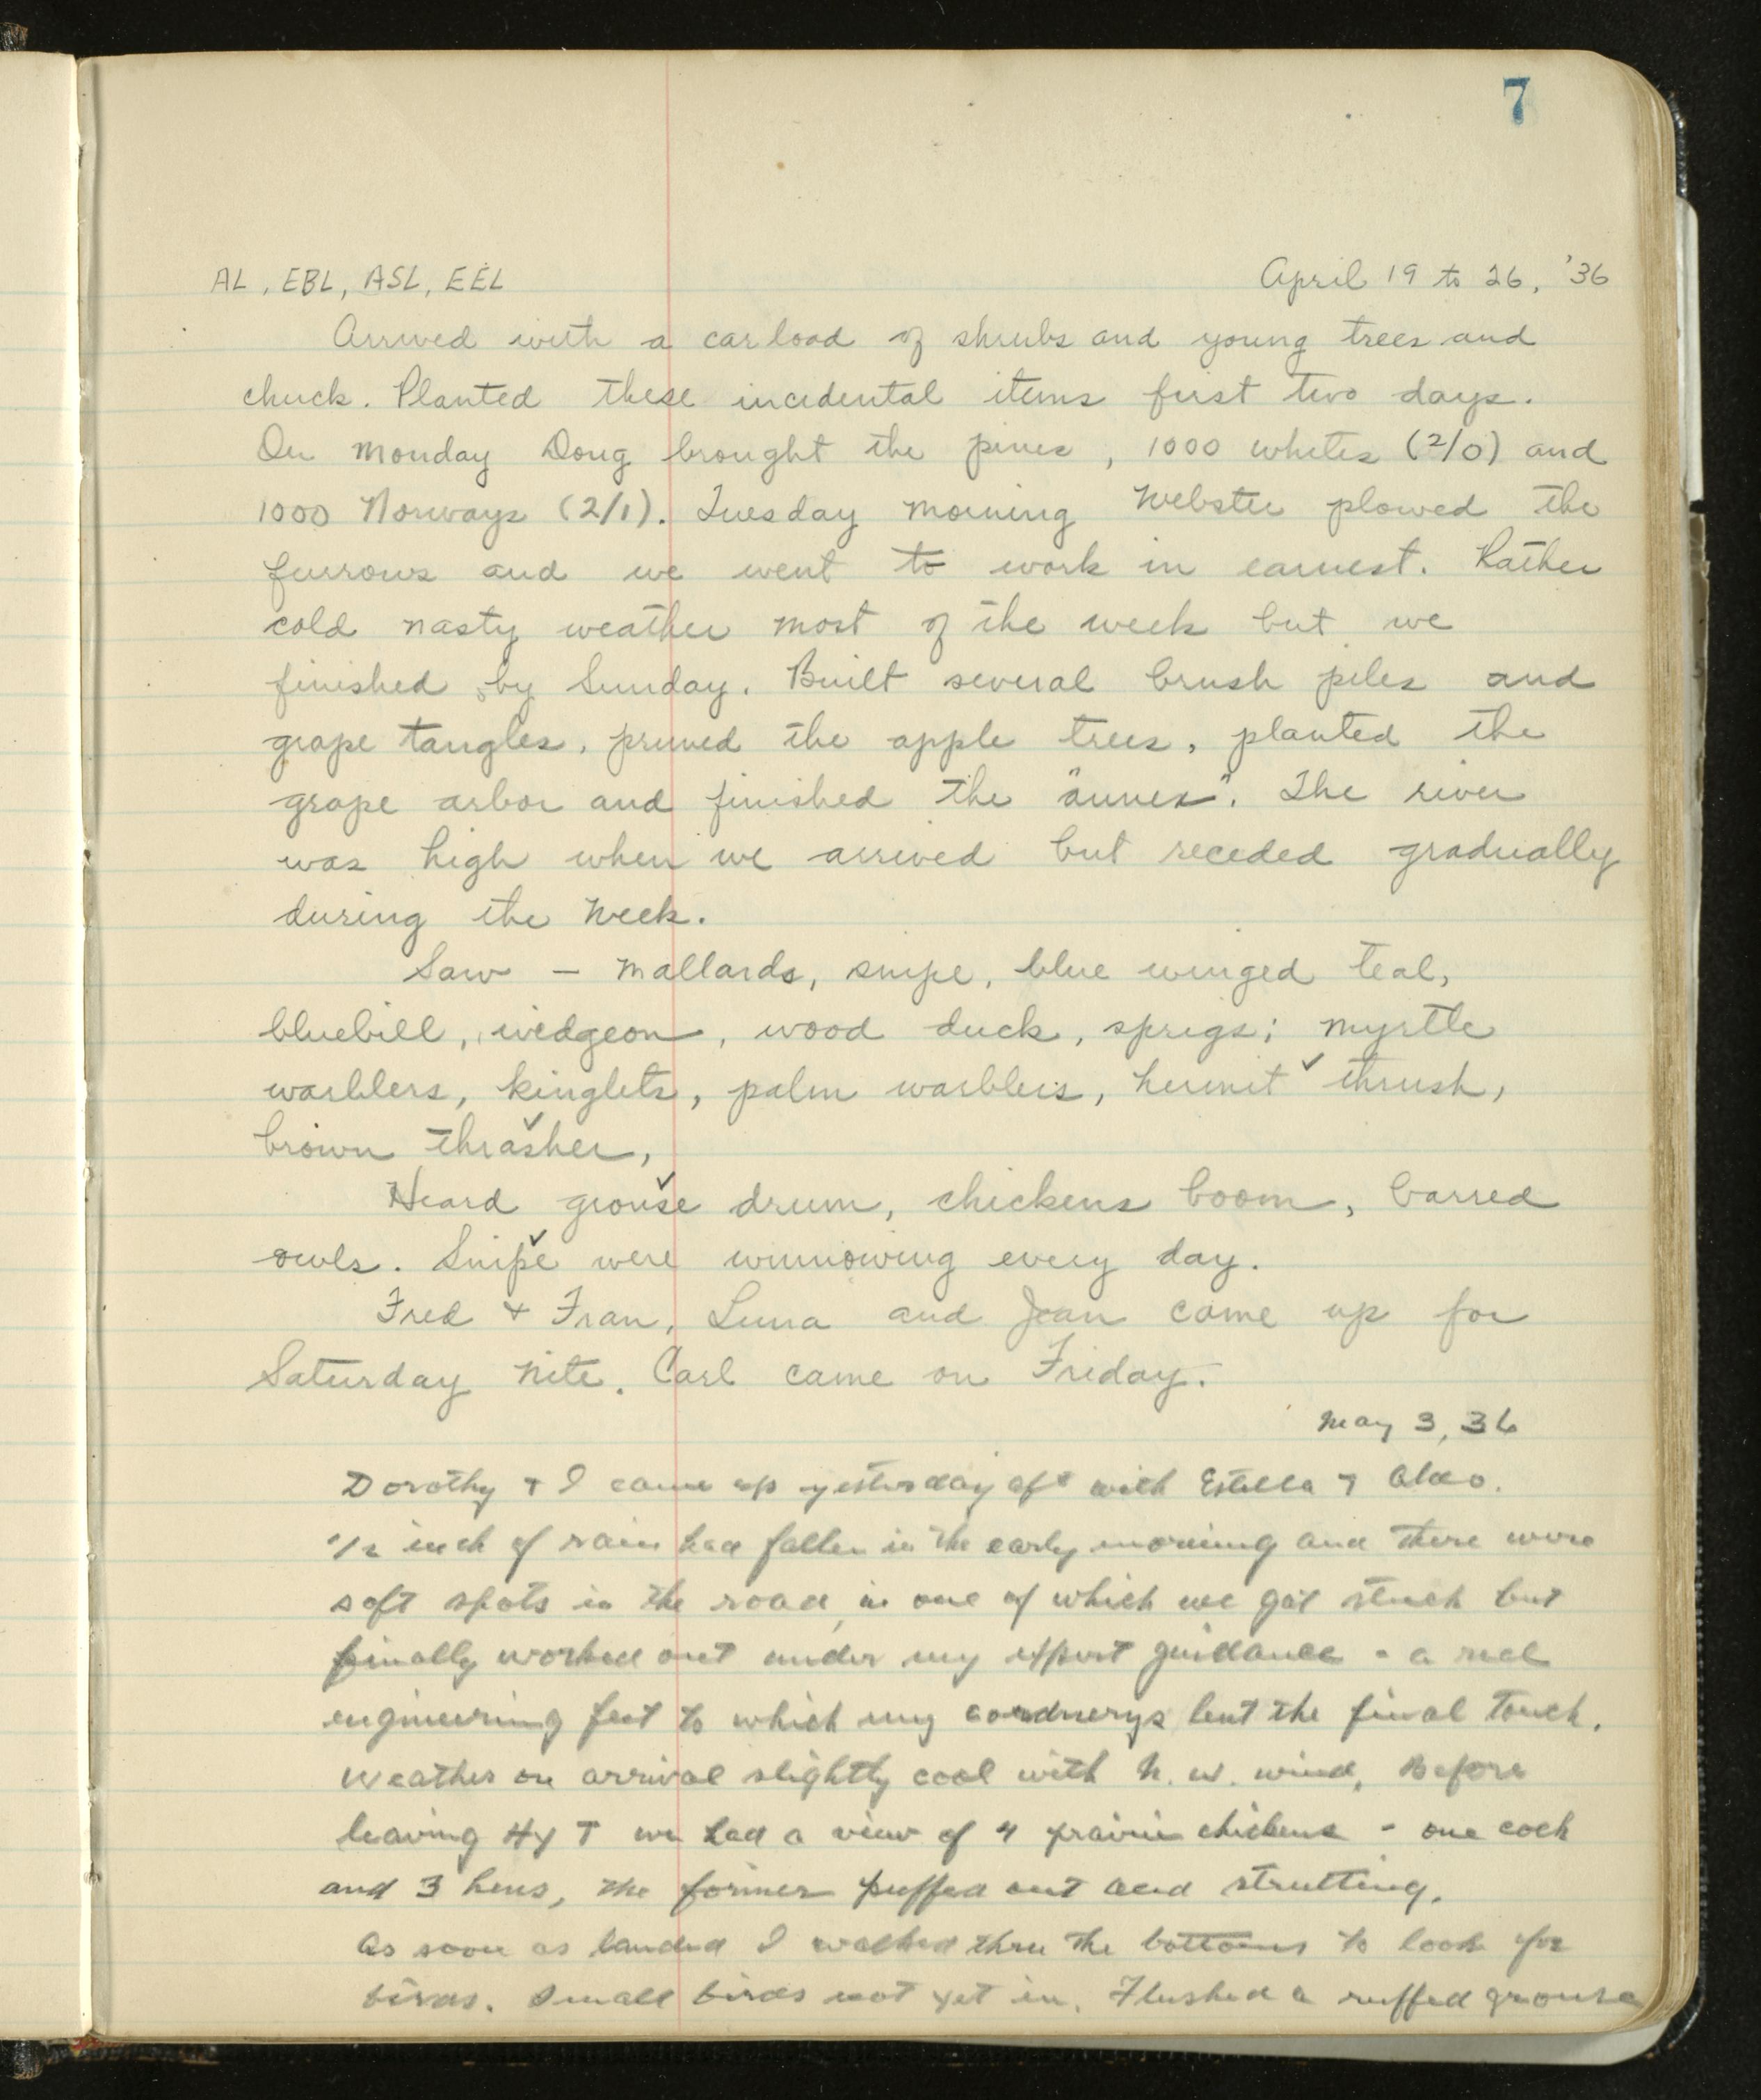 7
AL, EBL, ASL, EEL April 19 to 26, '36
Arrived with a carload of shrubs and young trees and
chuck. Planted these incidental items first two days.
On Monday Doug brought the pines, 1000 whites (2/0) and
1000 Norways (2/1). Tuesday morning Webster plowed the
furrows and we went to work in earnest. Rather
cold nasty weather most of the week but we
finished by Sunday. Built several brush piles and
grape tangles, pruned the apple trees, planted the
grape arbor and finished the "annex". The river
was high when we arrived but receded gradually
during the week.
Saw — mallards, snipe, blue winged teal,
bluebill, widgeon, wood duck, sprigs; myrtle
warblers, kinglets, palm warblers, hermit ✓ thrush,
brown thrasher, ✓
Heard grouse ✓ drum, chickens boom, barred
owls. Snipe ✓ were winnowing every day.
Fred & Fran, Luna and Jean came up for
Saturday nite. Carl came on Friday.
May 3, 36
Dorothy & I came up yesterday aft with Estella & Aldo.
1/2 inch of rain had fallen in the early morning and there were
soft spots in the road, in one of which we got stuck but
finally worked out under my expert guidance - a real
engineering feat to which my corduroys lent the final touch.
Weather on arrival slightly cool with N. W. wind. Before
leaving Hy T we had a view of 4 prairie chickens - one cock
and 3 hens, the former puffed out and strutting.
As soon as landed I walked thru the bottoms to look for
birds. Small birds not yet in. Flushed a ruffed grouse